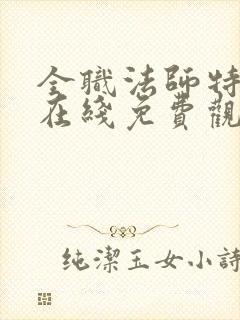 全職法師特
在綫免費觀
純潔玉女小詩